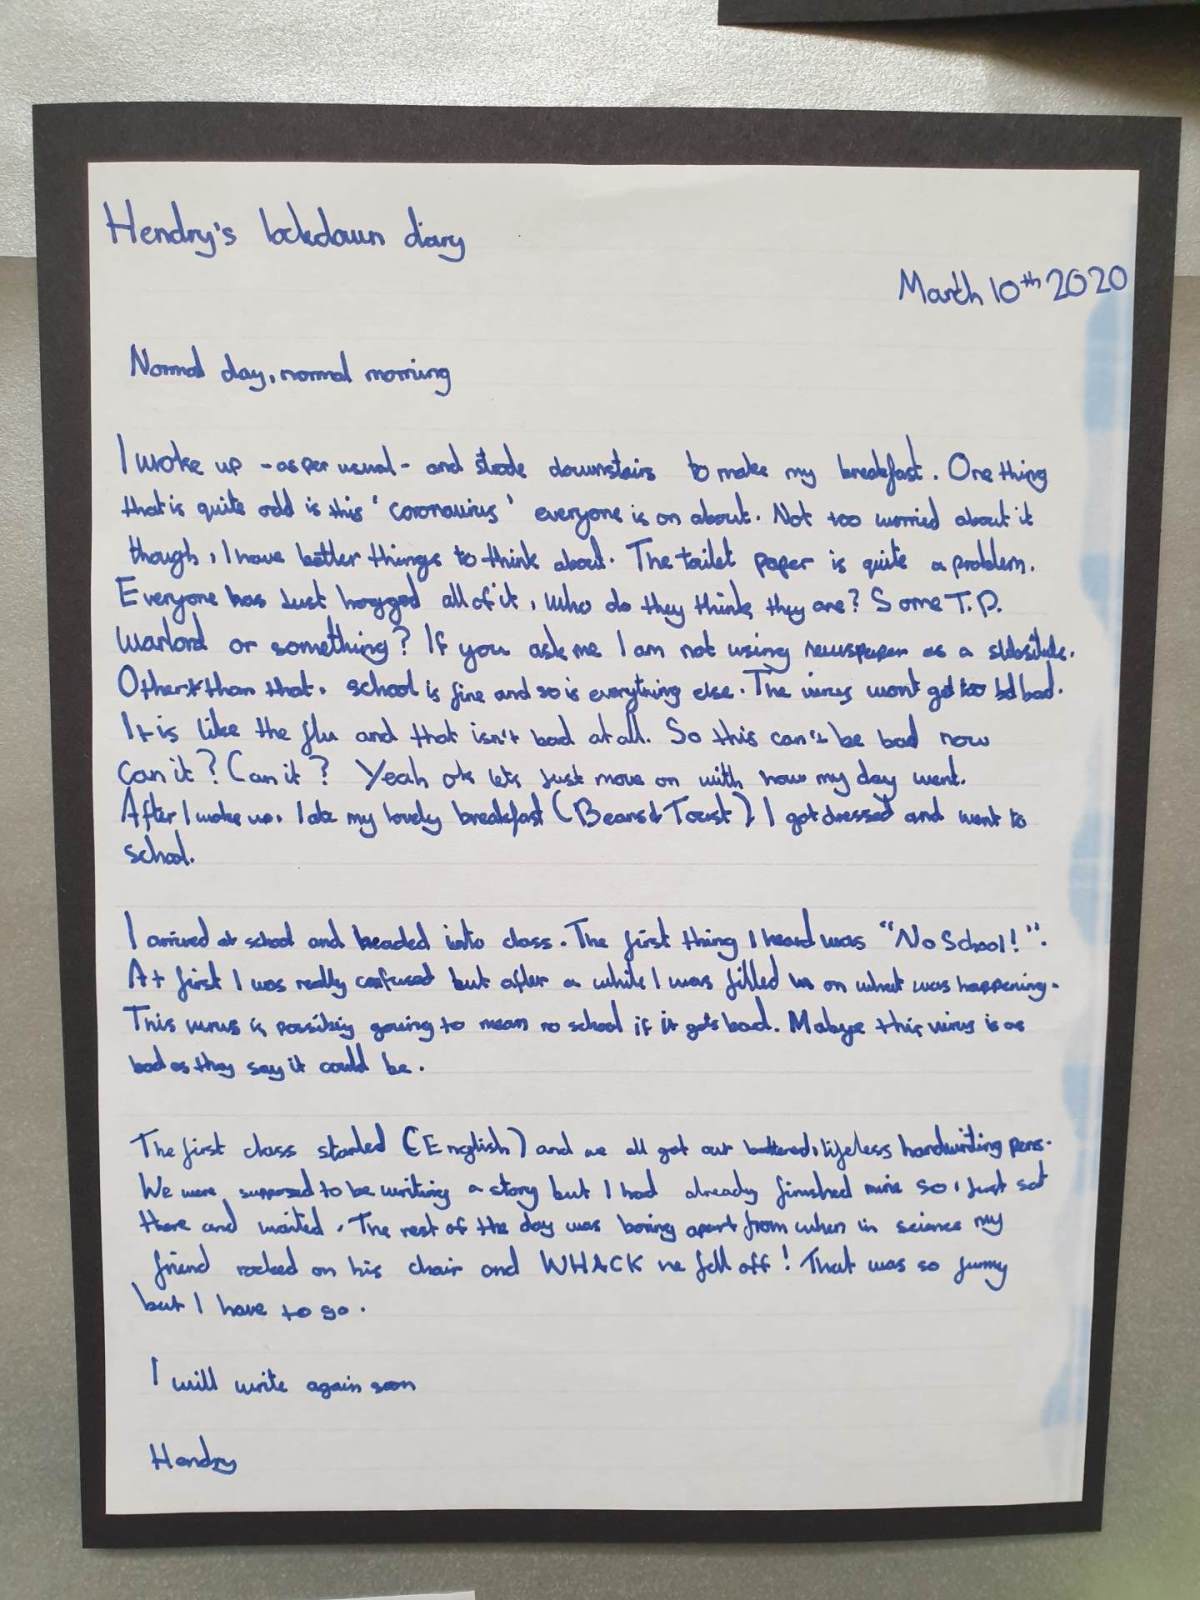 Hendry's lockdown diary
March 10th 2020
Normal day, normal morning
I woke up - as per usual - and strode downstairs to make my breakfast. One thing
that is quite odd is this 'coronavirus' everyone is on about. Not too worried about it
though, I have better things to think about. The toilet paper is quite a problem.
Everyone has just hogged all of it, who do they think they are? Some T.P.
warlord or something? If you ask me I am not using newspaper as a
Other than that, school is fine and so is everything else. The virus wont get too bad.
It is like the flu and that isn't bad at all. So this can't be bad now
can it? Can it? Yeah ok lets just move on with how my day went.
After I woke up, I ate my lovely breakfast (Beans & Toast), I got dressed and went to
school.
I arrived at school and headed into class. The first thing I heard was "No School!".
At first I was really confused but after a while I was filled in on what was happening.
This virus is going to mean no school if it gets bad. this virus is as
bad as they say it could be.
The first class started (English) and we all got our battered, lifeless handwriting pens.
We were supposed to be writing a story but I had already finished mine so I just sat
there and waited. The rest of the day was boring apart from when in science my
friend rocked on his chair and WHACK he fell off! That was so funny
but I have to go.
I will write again soon
Hendry